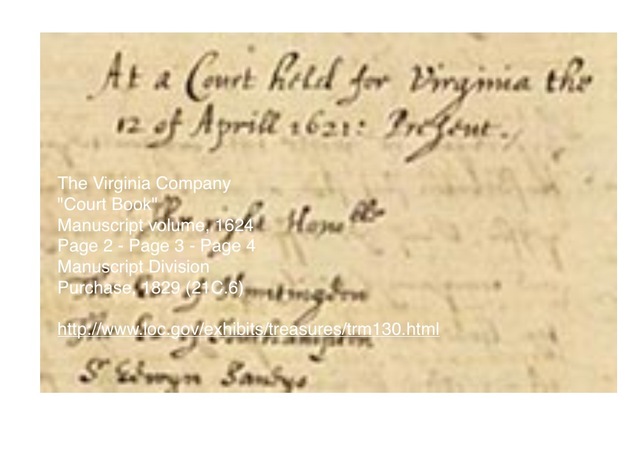 At a Court held for Virginia the
12 of Aprill 1621: Present.
The Virginia Company
"Court Book"
The right Honoble
Manuscript volume, 1624
Page 2 - Page 3 - Page 4
Manuscript Division
Purchase, 1829 (21C.6)
The E of Huntingdon
http://www.loc.gov/exhibits/treasures/trm130.html
The E of Southampton
Sr Edwyn Sandys